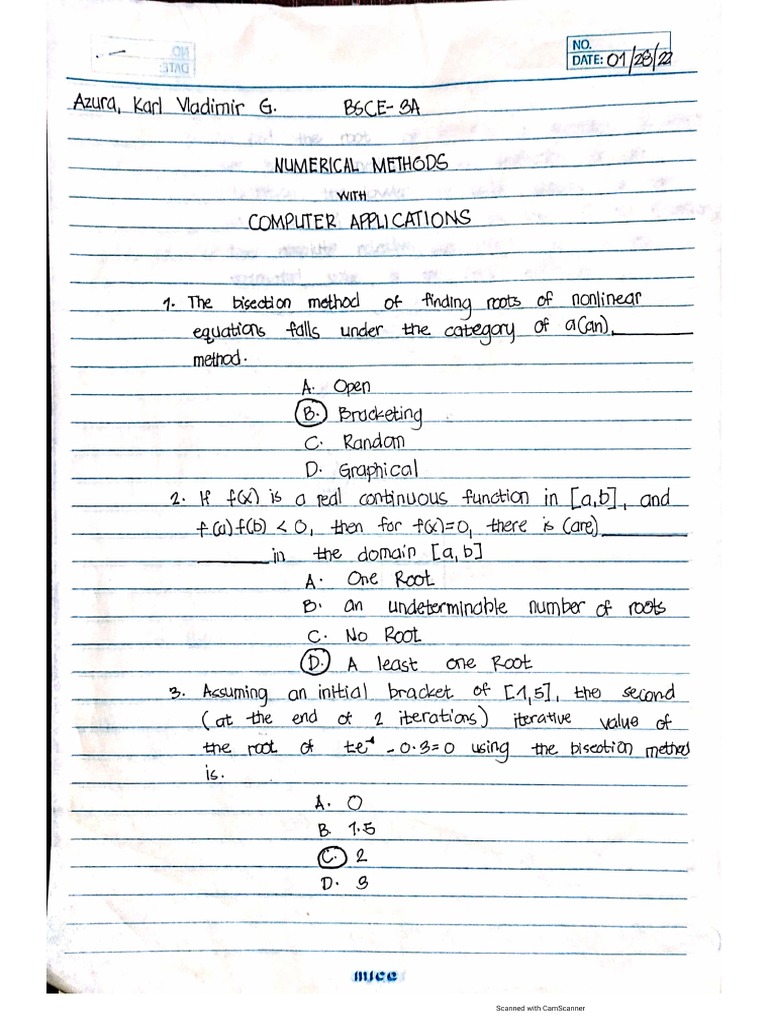 NO.
DATE: 01/28/22
Azura, Karl Vladimir G. BSCE-3A
NUMERICAL METHODS
WITH
COMPUTER APPLICATIONS
1. The bisection method of finding roots of nonlinear
equations falls under the category of a(an) ________
method.
A. Open
B. Bracketing
C. Random
D. Graphical
2. If f(x) is a real continuous function in [a,b], and
f(a)f(b) < 0, then for f(x)=0, there is (are) ________
________ in the domain [a,b]
A. One Root
B. an undeterminable number of roots
C. No Root
D. A least one Root
3. Assuming an initial bracket of [1,5], the second
(at the end of 2 iterations) iterative value of
the root of te^-t - 0.3=0 using the bisection method
is.
A. 0
B. 1.5
C. 2
D. 3
Scanned with CamScanner